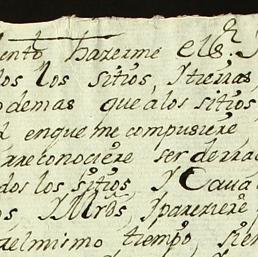 hazerme el s.r
los los sitios, Y tierras
demas que a los sitios,
en que me compusiere,
reconociere ser de
dos los sitios, Y Cava
Y Mrds, Y pareziere
el mismo tiempo, sien